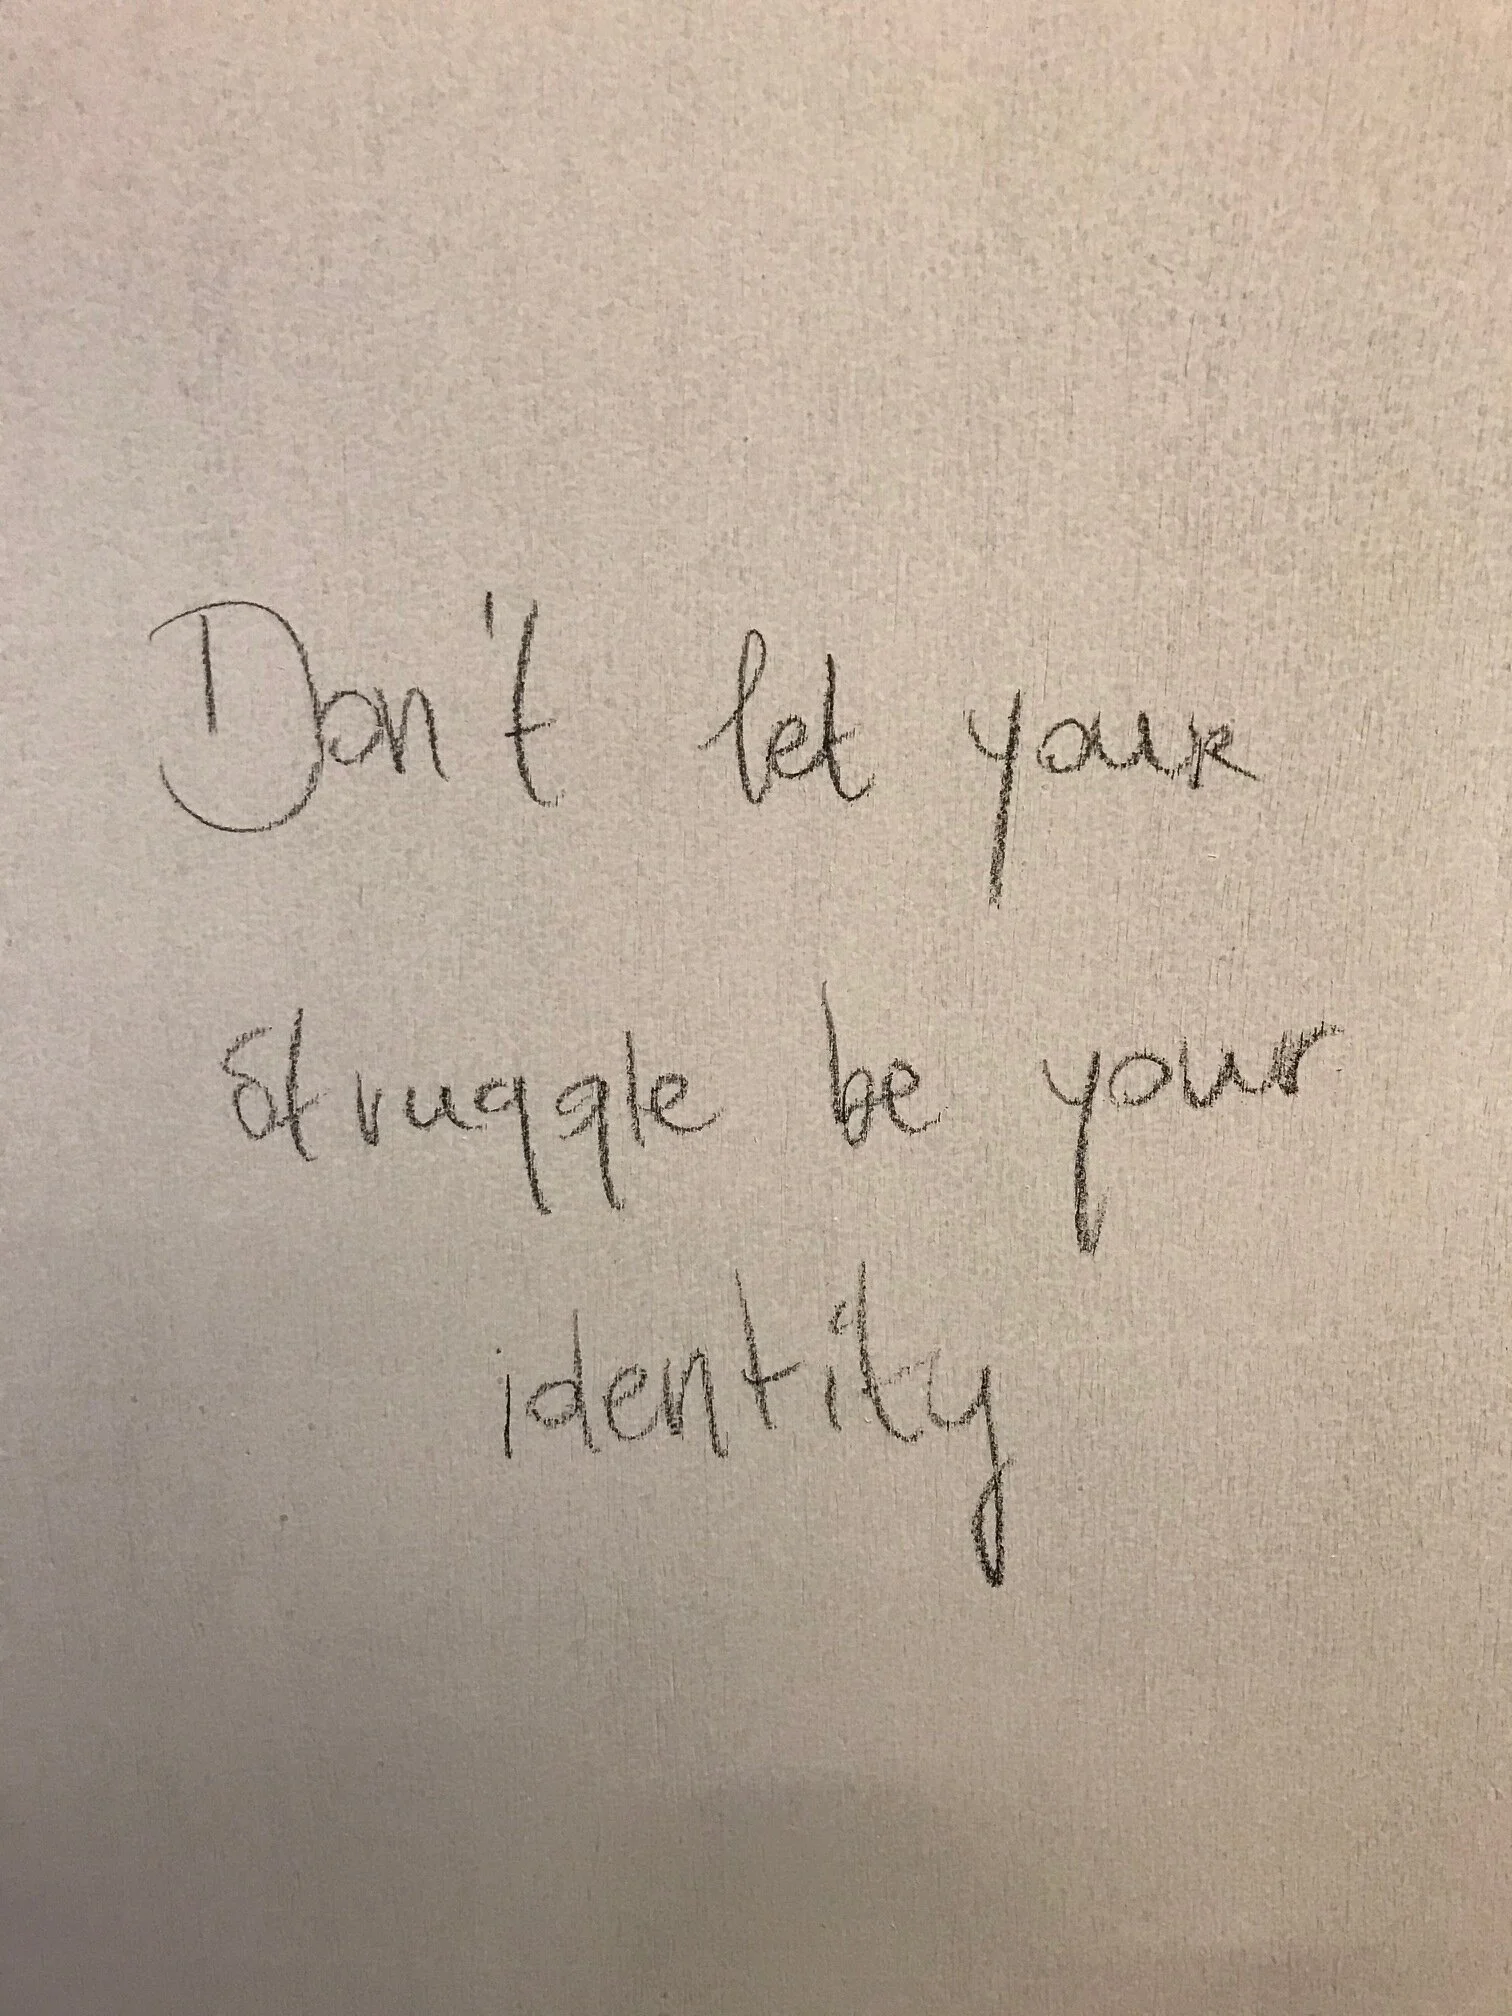 Don't let your
struggle be your
identity